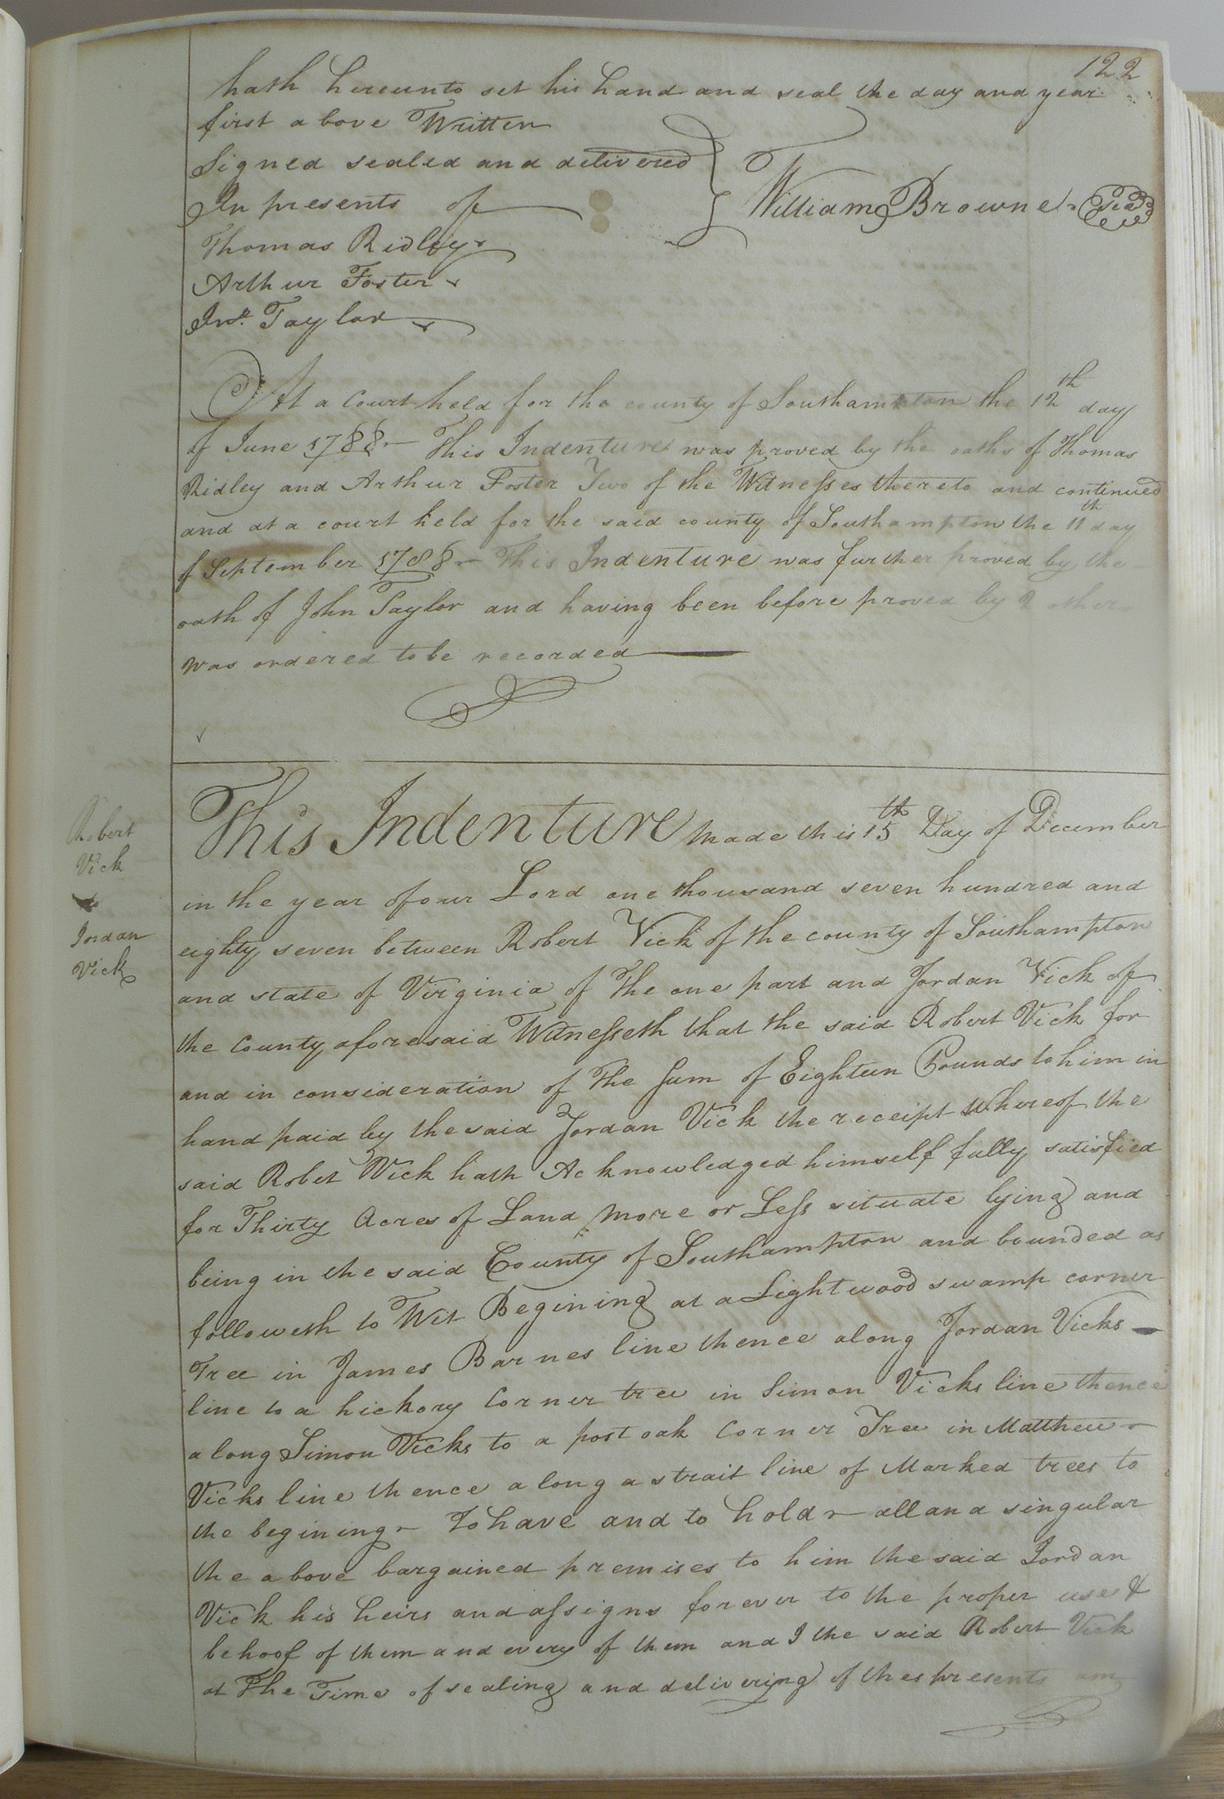 122
hath hereunto set his hand and seal the day and year
first above Written
Signed sealed and delivered
In presents of
William Browne Seal
Thomas Ridley
Arthur Foster
Jno. Taylor
At a Court held for the county of Southampton the 12th day
of June 1788 This Indenture was proved by the oaths of Thomas
Ridley and Arthur Foster Two of the Witnesses thereto and continued
and at a court held for the said county of Southampton the 11th day
of September 1788 This Indenture was further proved by the
oath of John Taylor and having been before proved by 2 other
was ordered to be recorded
Robert
Vick
to
Jordan
Vick
This Indenture Made this 15th Day of December
in the year of our Lord one thousand seven hundred and
eighty seven between Robert Vick of the county of Southampton
and state of Virginia of The one part and Jordan Vick of
the County aforesaid Witnesseth that the said Robert Vick for
and in consideration of The Sum of Eighteen Pounds to him in
hand paid by the said Jordan Vick the receipt whereof the
said Robet Vick hath Acknowledged himself fully satisfied
for Thirty Acres of Land More or Less situate lying and
being in the said County of Southampton and bounded as
followeth to Wit Begining at a Lightwood swamp corner
Tree in James Barnes line thence along Jordan Vicks
line to a hickory Corner tree in Simon Vicks line thence
along Simon Vicks to a post oak Corner Tree in Matthew
Vicks line thence along a strait line of Marked trees to
the begining To have and to hold all and singular
the above bargained premises to him the said Jordan
Vick his heirs and assigns forever to the proper use &
behoof of them and every of them and I the said Robert Vick
at The Time of sealing and delivering of thes presents am